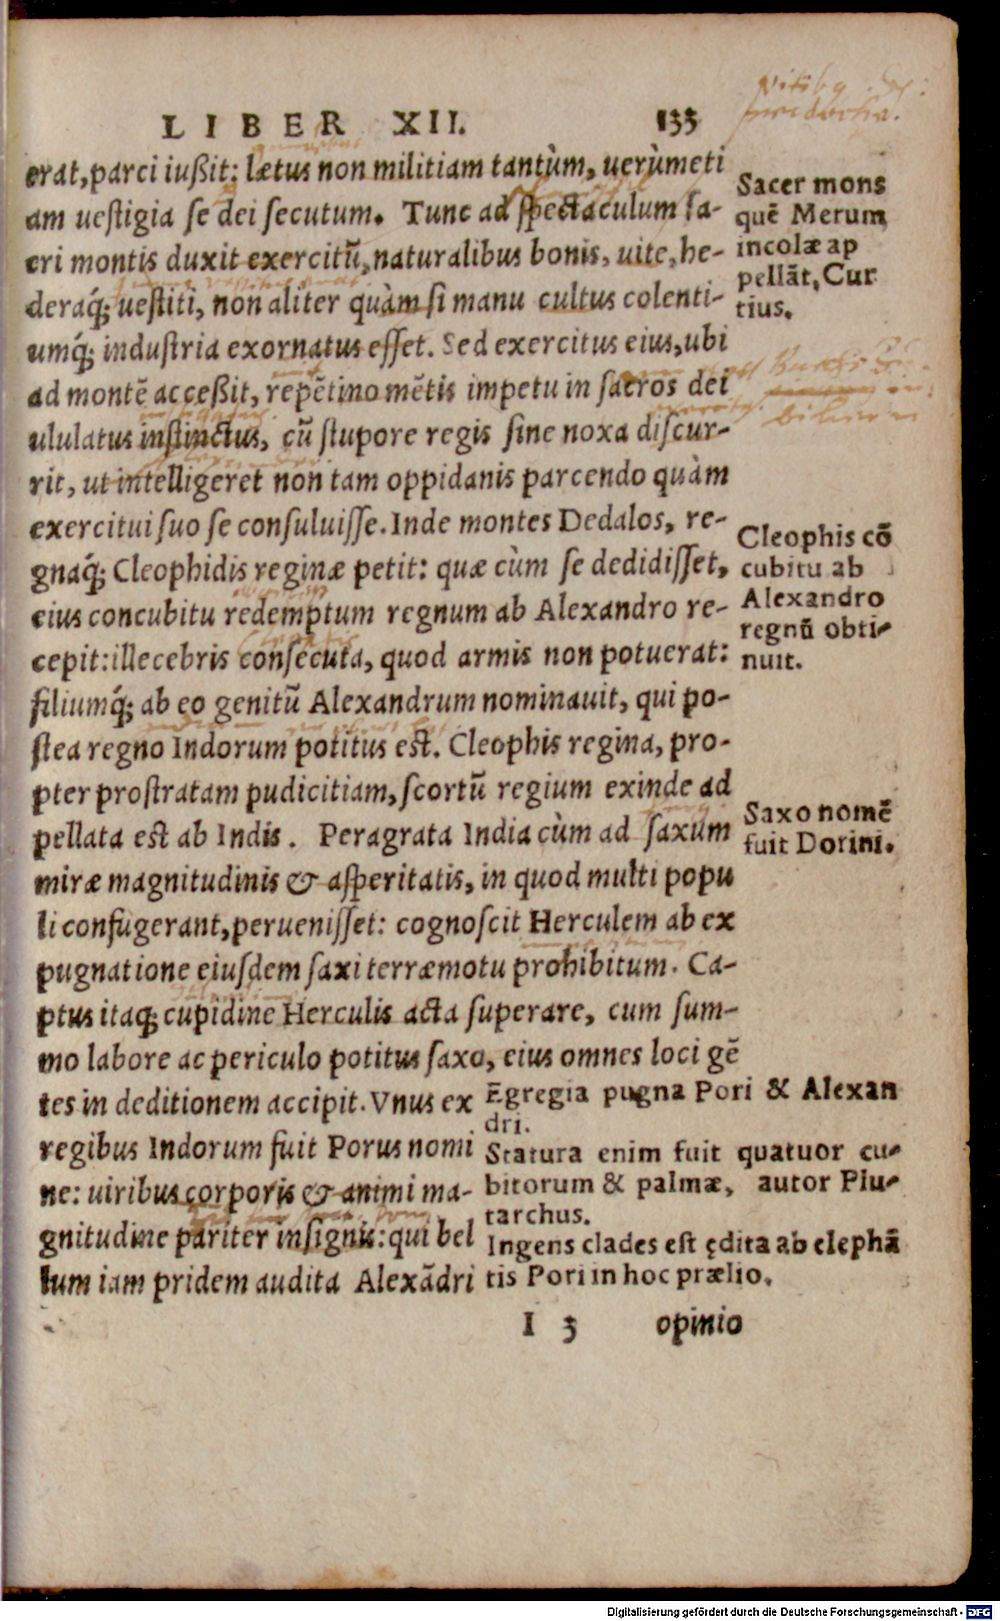 LIBER XII. 133
erat, parci iußit: lætus non militiam tantùm, uerùmeti
am uestigia se dei secutum. Tunc ad spectaculum sa-
cri montis duxit exercitũ, naturalibus bonis, uite, he-
deraq́; uestiti, non aliter quàm si manu cultus colenti-
umq́; industria exornatus esset. Sed exercitus eius, ubi
ad montẽ acceßit, repẽtino mẽtis impetu in sacros dei
ululatus instinctus, cũ stupore regis sine noxa discur-
rit, ut intelligeret non tam oppidanis parcendo quàm
exercitui suo se consuluisse. Inde montes Dedalos, re-
gnaq́; Cleophidis reginæ petit: quæ cùm se dedidisset,
eius concubitu redemptum regnum ab Alexandro re-
cepit: illecebris consecuta, quod armis non potuerat:
filiumq́; ab eo genitũ Alexandrum nominauit, qui po-
stea regno Indorum potitus est. Cleophis regina, pro-
pter prostratam pudicitiam, scortũ regium exinde ad
pellata est ab Indis. Peragrata India cùm ad saxum
miræ magnitudinis & asperitatis, in quod multi popu
li confugerant, peruenisset: cognoscit Herculem ab ex
pugnatione eiusdem saxi terræmotu prohibitum. Ca-
ptus itaq; cupidine Herculis acta superare, cum sum-
mo labore ac periculo potitus saxo, eius omnes loci gẽ
tes in deditionem accipit. Vnus ex
regibus Indorum fuit Porus nomi
ne: uiribus corporis & animi ma-
gnitudine pariter insignis: qui bel
lum iam pridem audita Alexãdri
Sacer mons
quẽ Merum
incolæ ap
pellãt, Cur
tius.
Cleophis cõ
cubitu ab
Alexandro
regnũ obti-
nuit.
Saxo nomẽ
fuit Dorini.
Egregia pugna Pori & Alexan
dri.
Statura enim fuit quatuor cu-
bitorum & palmæ, autor Plu-
tarchus.
Ingens clades est ędita ab elephã
tis Pori in hoc prælio.
I 3 opinio
Digitalisierung gefördert durch die Deutsche Forschungsgemeinschaft - DFG